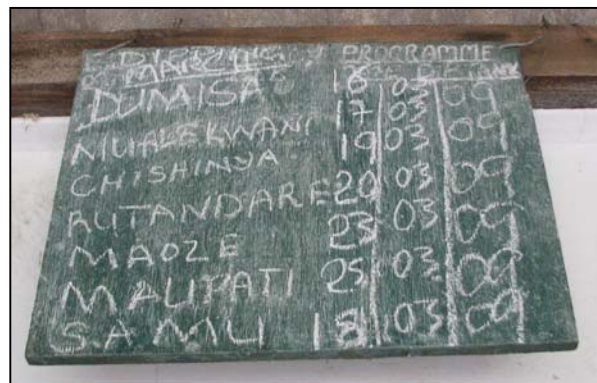 PROGRAMME
DUMISA 16 03 09
MUALEKWANI 17 03 09
CHISHINYA 19 03 09
RUTANDARE 20 03 09
MAOZE 23 03 09
MALIPATI 25 03 09
SAMU 18 03 09